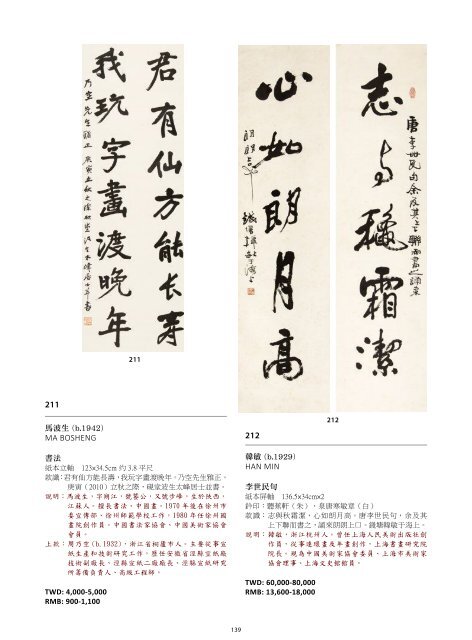 君有仙方能長壽
我玩字畫渡晚年
志與秋霜潔
心如朗月高
211
212
211
馬波生 (b.1942)
MA BOSHENG
書法
紙本立軸 123x34.5cm 約 3.8 平尺
款識：君有仙方能長壽，我玩字畫渡晚年。乃空先生雅正，
庚寅（2010）立秋之際，硯堂波生太峰居士並書。
說明：馬波生，字剛江，號
江蘇人。擅長書法、中國畫。1970 年後在徐州市
委宣傳部、徐州師範學校工作，1980 年任徐州國
畫院創作員。中國書法家協會、中國美術家協會
會員。
上款：周乃空 (b.1932)，浙江省
紙生產和技術研究工作，歷任安徽省涇縣宣紙廠
技術副廠長、涇縣宣紙二廠廠長、涇縣宣紙研究
所籌備負責人、高級工程師。
TWD: 4,000-5,000
RMB: 900-1,100
212
韓敏 (b.1929)
HAN MIN
李世民句
紙本屏軸 136.5x34cmx2
鈐印：聽蕉軒（朱）、易唐寒敏章（白）
款識：志與秋霜潔，心如朗月高。唐李世民句，余及其
上下聯而書之，誦來朗朗上口。錢塘韓敏于海上。
說明：韓敏，浙江杭州人。曾任上海人民美術出版社創
作員，從事連環畫及年畫創作。上海書畫研究院
院長，現為中國美術家協會會員、上海市美術家
協會理事、上海文史館館員。
TWD: 60,000-80,000
RMB: 13,600-18,000
139